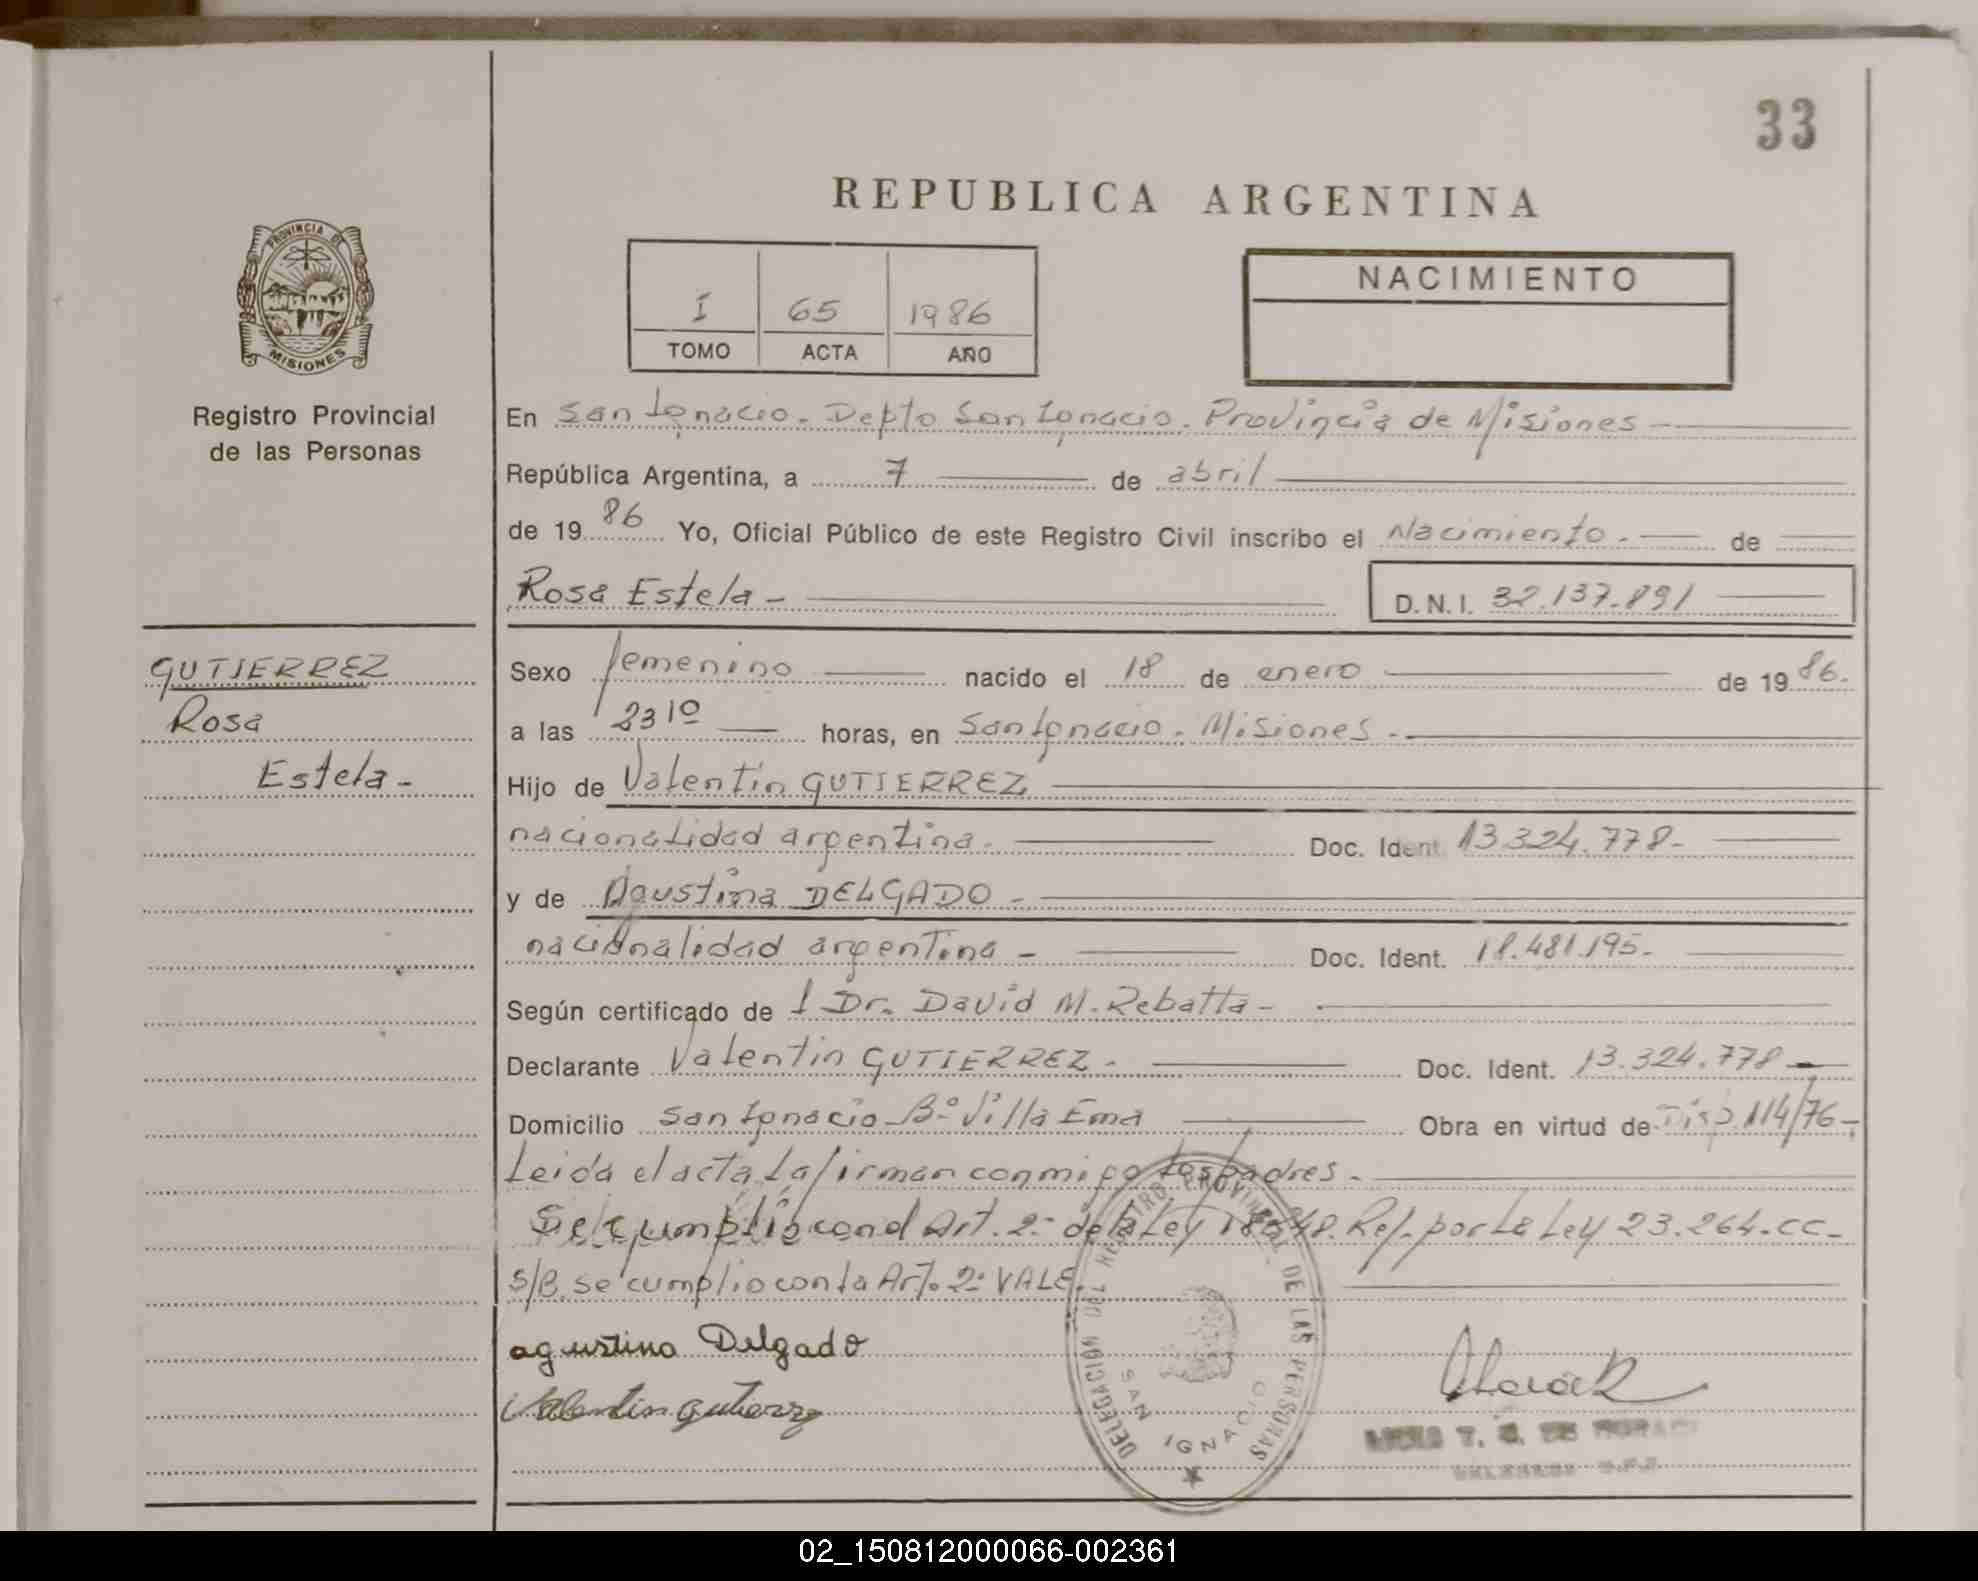 33
REPUBLICA ARGENTINA
I 65 1986
TOMO ACTA AÑO
NACIMIENTO
PROVINCIA DE
MISIONES
Registro Provincial
de las Personas
GUTIERREZ
Rosa
Estela-
En San Ignacio. Depto San Ignacio. Provincia de Misiones
República Argentina, a 7 de abril
de 1986 Yo, Oficial Público de este Registro Civil inscribo el Nacimiento. de
Rosa Estela- D.N.I. 32.137.891
Sexo femenino nacido el 18 de enero de 1986.
a las 23 10 horas, en San Ignacio. Misiones.
Hijo de Valentin GUTIERREZ
nacionalidad argentina. Doc. Ident. 13.324.778-
y de Agustina DELGADO-
nacionalidad argentina- Doc. Ident. 18.481.195-
Según certificado de 1 Dr. David M. Rebatta-
Declarante Valentin GUTIERREZ. Doc. Ident. 13.324.778-
Domicilio San Ignacio Bº Villa Ema Obra en virtud de Disp. 114/76-
Leida el acta, la firman conmigo los padres.
Se cumplio con el Art. 2- de la Ley 18248. Ref. por la Ley 23.264.CC-
S/B. se cumplio con la Art. 2º VALE.
agustina Delgado
Valentin gutierrez
REGISTRO PROVINCIAL DE LAS PERSONAS
DELEGACION 700
SAN IGNACIO
02_150812000066-002361